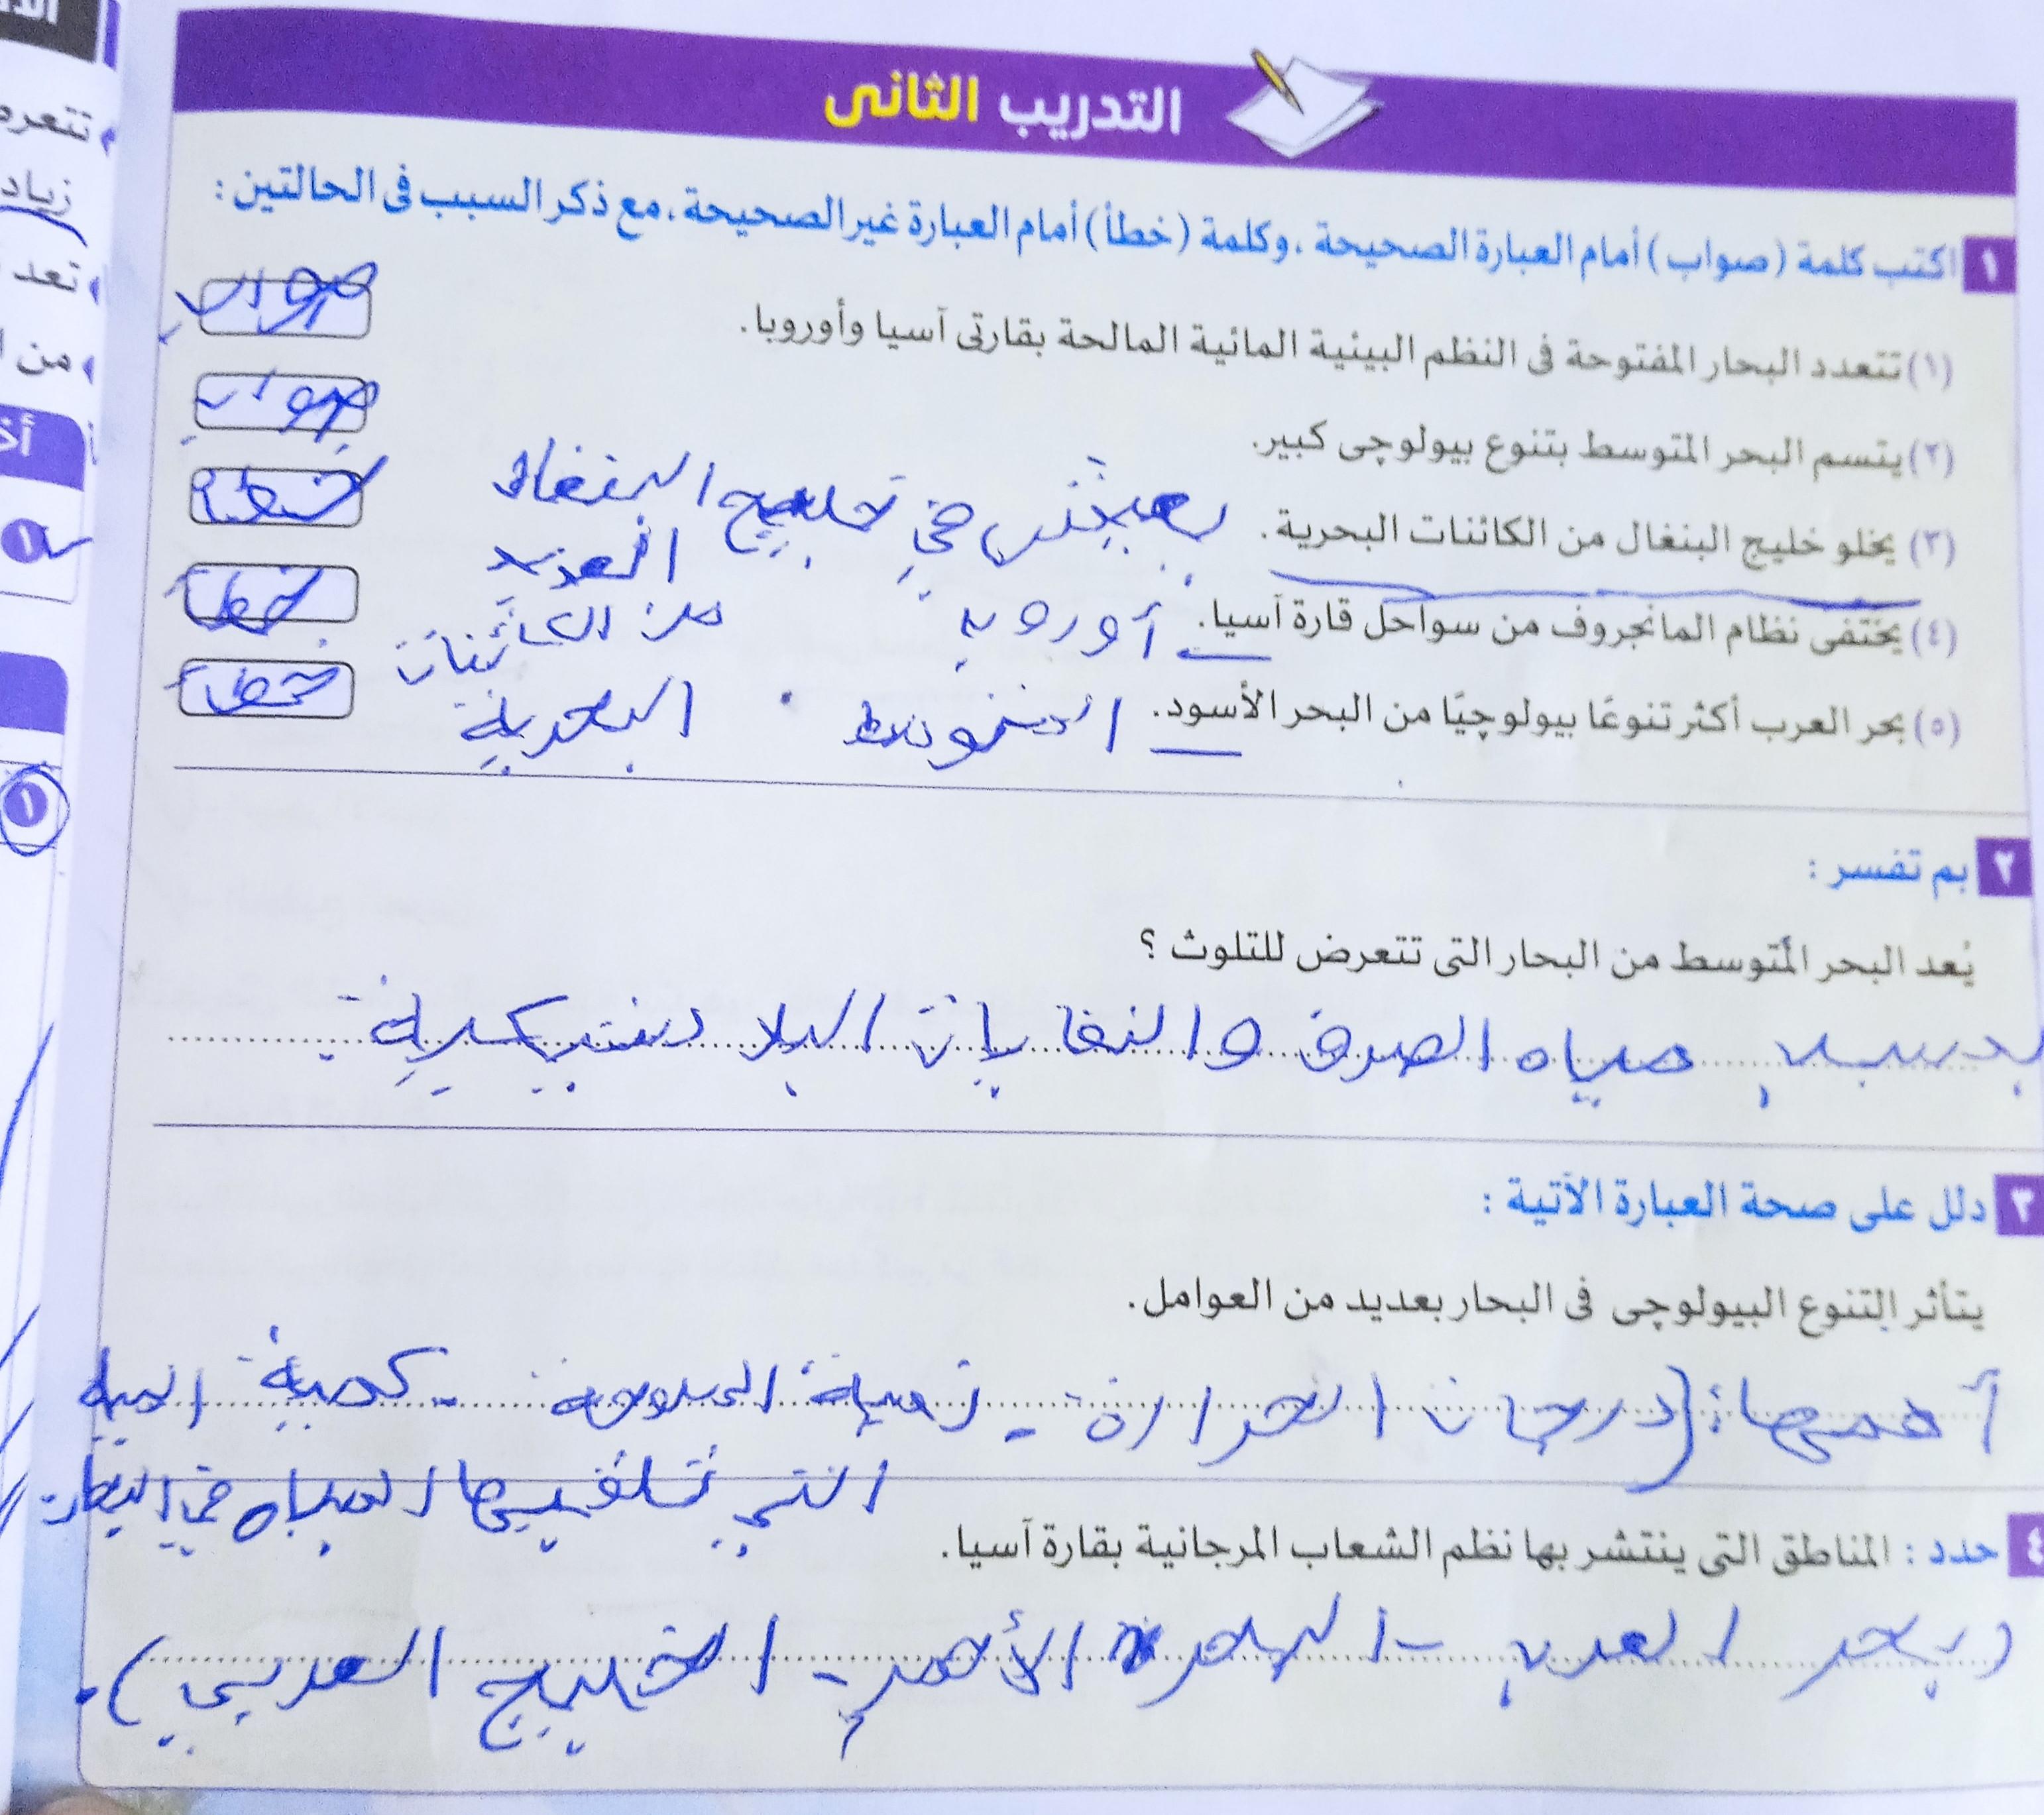 التدريب الثانى
١ اكتب كلمة (صواب) أمام العبارة الصحيحة، وكلمة (خطأ) أمام العبارة غير الصحيحة، مع ذكر السبب فى الحالتين :
(١) تتعدد البحار المفتوحة فى النظم البيئية المائية المالحة بقارتى آسيا وأوروبا. صواب
(٢) يتسم البحر المتوسط بتنوع بيولوچى كبير. صواب
(٣) يخلو خليج البنغال من الكائنات البحرية. يعيش في خليج البنغال خطأ
العديد
(٤) يختفى نظام المانجروف من سواحل قارة آسيا. أوروبا من الكائنات خطأ
(٥) بحر العرب أكثر تنوعًا بيولوچيًا من البحر الأسود. المتوسط البحرية خطأ
٢ بم تفسر :
يُعد البحر المتوسط من البحار التى تتعرض للتلوث ؟
بسبب مياه الصرف والنفايات البلاستيكية.
٣ دلل على صحة العبارة الآتية :
يتأثر التنوع البيولوچى فى البحار بعديد من العوامل.
أهمها: (درجات الحرارة - نسبة الملوحة - كمية
التي تتلقيها المياه في
٤ حدد : المناطق التى ينتشر بها نظم الشعاب المرجانية بقارة آسيا.
(بحر العرب - البحر الأحمر - الخليج العربي).
تتعرض
زياد
تعد
من ا
أخ
١
١